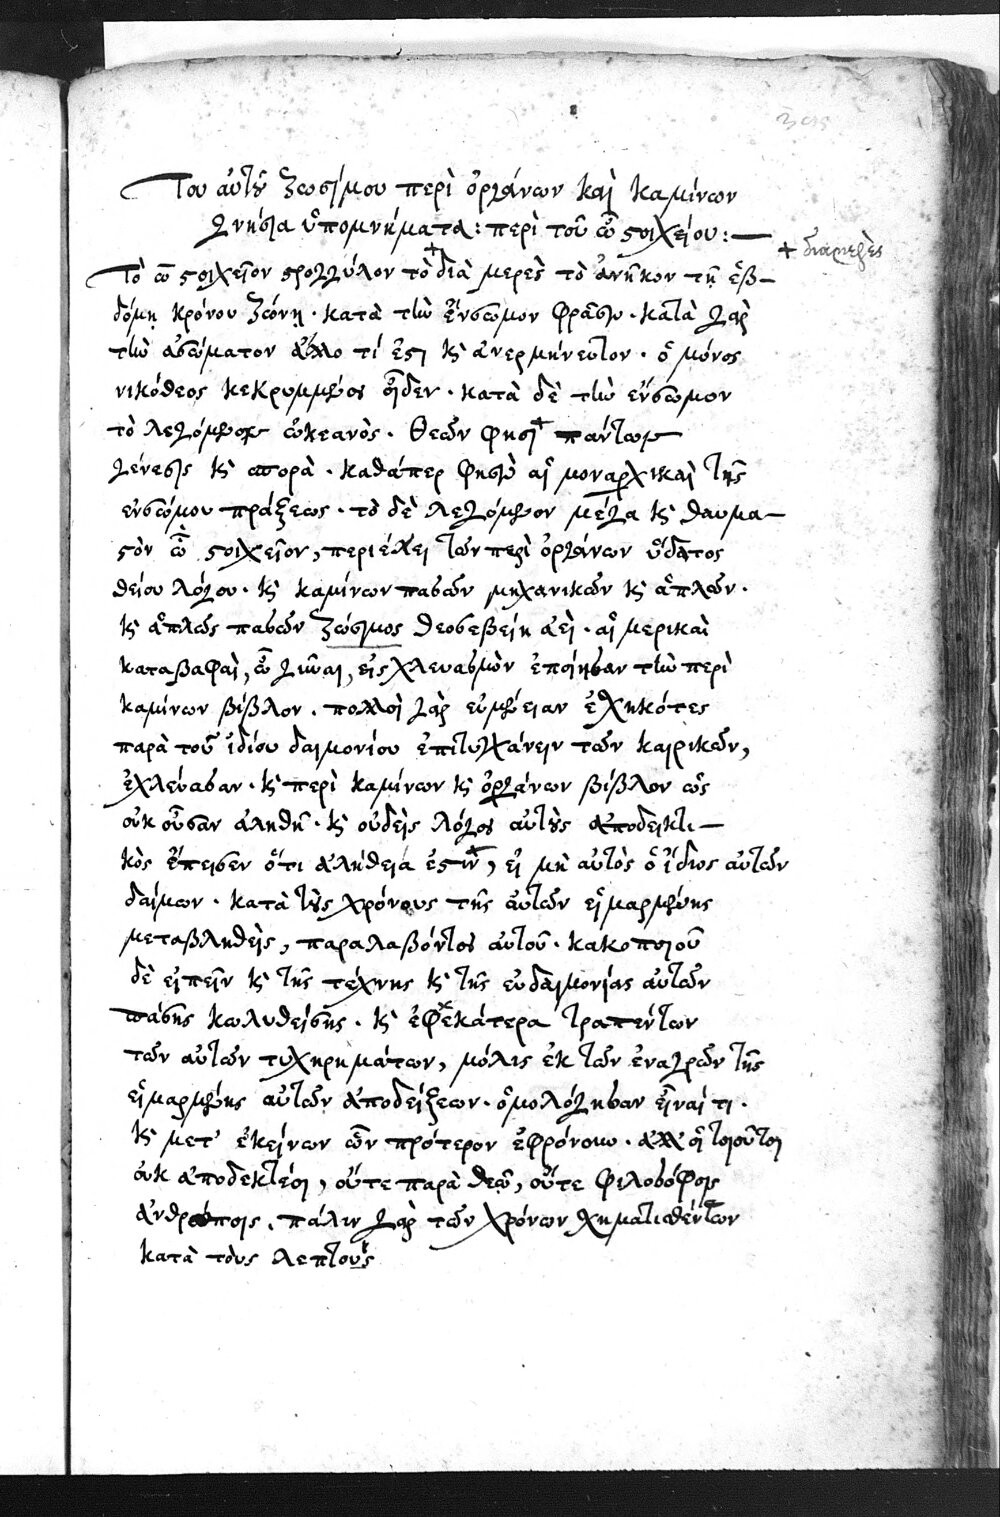 Του αὐτοῦ Ζωσίμου περὶ ὀργάνων καὶ καμίνων
γνήσια ὑπομνήματα : περὶ τοῦ ω̅ στοιχείου : —
+ διαμερὲς
Τὸ ω̅ στοιχεῖον στρογγύλον τὸ + διὰ μερὲς τὸ ἀνῆκον τῇ ἑβ-
δόμῃ κρόνου ζώνῃ · κατὰ τὴν ἔνσωμον φράσιν · κατὰ γὰρ
τὴν ἀσώματον ἄλλο τί ἐστι κ̀ ἀνερμήνευτον · ὃ μόνος
νικόθεος κεκρυμμένος οἶδεν · κατὰ δὲ τὴν ἔνσωμον
τὸ λεγόμενος ὠκεανὸς · θεῶν φησὶ + πάντων
γένεσις κ̀ σπορὰ · καθάπερ φησὶν αἱ μοναρχικαὶ τῆς
ἐνσώμου πράξεως · τὸ δὲ λεγόμενον μέγα κ̀ θαυμα-
στὸν ω̅ στοιχεῖον, περιέχει τὸν περὶ ὀργάνων ὕδατος
θείου λόγου · κ̀ καμίνων πασῶν μηχανικῶν κ̀ ἁπλῶν ·
κ̀ ἁπλῶς πασῶν Ζώσιμος θεοσεβείῃ ἀεὶ · αἱ μερικαὶ
καταβαφαὶ, ὦ γύναι, εἰς χλευασμὸν ἐποίησαν τὴν περὶ
καμίνων βίβλον · πολλοὶ γὰρ εὐμένειαν ἐχηκότες
παρὰ τοῦ ἰδίου δαιμονίου ἐπιτυγχάνειν τῶν καιρικῶν,
ἐχλεύασαν · κ̀ περὶ καμίνων κ̀ ὀργάνων βίβλον ὡς
οὐκ οὖσαν ἀληθῆ · κ̀ οὐδεὶς λόγος αὐτοὺς ἀποδεικτι-
κὸς ἔπεισεν ὅτι ἀλήθεια ἐστιν, εἰ μὴ αὐτὸς ὁ ἴδιος αὐτῶν
δαίμων · κατὰ τοὺς χρόνους τῆς αὐτῶν εἱμαρμένης
μεταβληθεὶς, παραλαβόντος αὐτοῦ · κακοποιοῦ
δὲ εἰπεῖν κ̀ τῆς τέχνης κ̀ τῆς εὐδαιμονίας αὐτῶν
πάσης κωλυθείσης · κ̀ ἐφ' ἑκάτερα τραπέντων
τῶν αὐτῶν τυχηρημάτων, μόλις ἐκ τῶν ἐναργῶν τῆς
εἱμαρμένης αὐτῶν ἀποδείξεων · ὁμολόγησαν εἶναί τι ·
κ̀ μετ' ἐκείνων ὧν πρότερον ἐφρόνουν · ἀλλ' οἱ τοιοῦτοι
οὐκ ἀποδεκτέοι, οὔτε παρὰ θεῷ, οὔτε φιλοσόφοις
ἀνθρώποις · πάλιν γὰρ τῶν χρόνων χηματισθέντων
κατὰ τοὺς λεπτοὺς